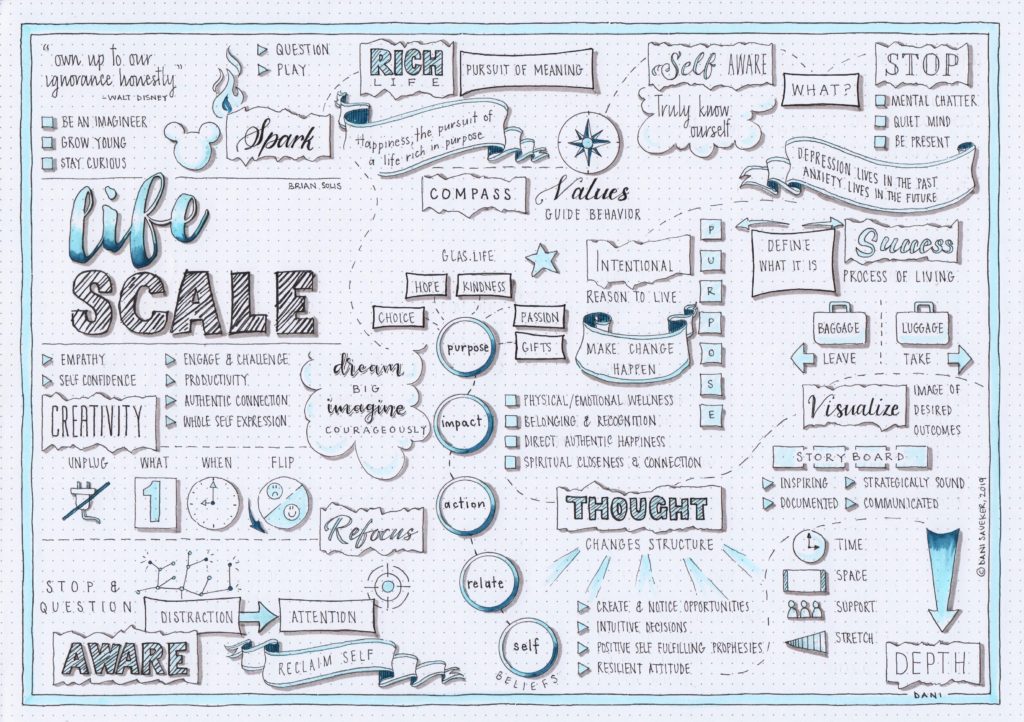 "own up to our
ignorance honestly"
- WALT DISNEY
BE AN IMAGINEER
GROW YOUNG
STAY CURIOUS
QUESTION
PLAY
Spark
BRIAN SOLIS
RICH
LIFE
PURSUIT OF MEANING
Happiness, the pursuit of
a life rich in purpose
Self AWARE
Truly know
ourself
WHAT?
STOP
MENTAL CHATTER
QUIET MIND
BE PRESENT
DEPRESSION LIVES IN THE PAST
ANXIETY LIVES IN THE FUTURE
COMPASS
Values
GUIDE BEHAVIOR
life
SCALE
GLAS.LIFE
HOPE
KINDNESS
CHOICE
PASSION
GIFTS
purpose
impact
action
relate
self
BELIEFS
INTENTIONAL
REASON TO LIVE
MAKE CHANGE
HAPPEN
PURPOSE
DEFINE
WHAT IT IS
Success
PROCESS OF LIVING
BAGGAGE
LEAVE
LUGGAGE
TAKE
EMPATHY
SELF CONFIDENCE
ENGAGE & CHALLENGE
PRODUCTIVITY
AUTHENTIC CONNECTION
WHOLE SELF EXPRESSION
CREATIVITY
dream
BIG
imagine
COURAGEOUSLY
PHYSICAL/EMOTIONAL WELLNESS
BELONGING & RECOGNITION
DIRECT AUTHENTIC HAPPINESS
SPIRITUAL CLOSENESS & CONNECTION
Visualize
IMAGE OF
DESIRED
OUTCOMES
STORY BOARD
INSPIRING
STRATEGICALLY SOUND
DOCUMENTED
COMMUNICATED
UNPLUG
WHAT
1
WHEN
FLIP
Refocus
THOUGHT
CHANGES STRUCTURE
CREATE & NOTICE OPPORTUNITIES
INTUITIVE DECISIONS
POSITIVE SELF FULFILLING PROPHESIES/
RESILIENT ATTITUDE
TIME
SPACE
SUPPORT
STRETCH
DEPTH
DANI
©DANI SAVEKER, 2019
STOP &
QUESTION
DISTRACTION
ATTENTION
AWARE
RECLAIM SELF